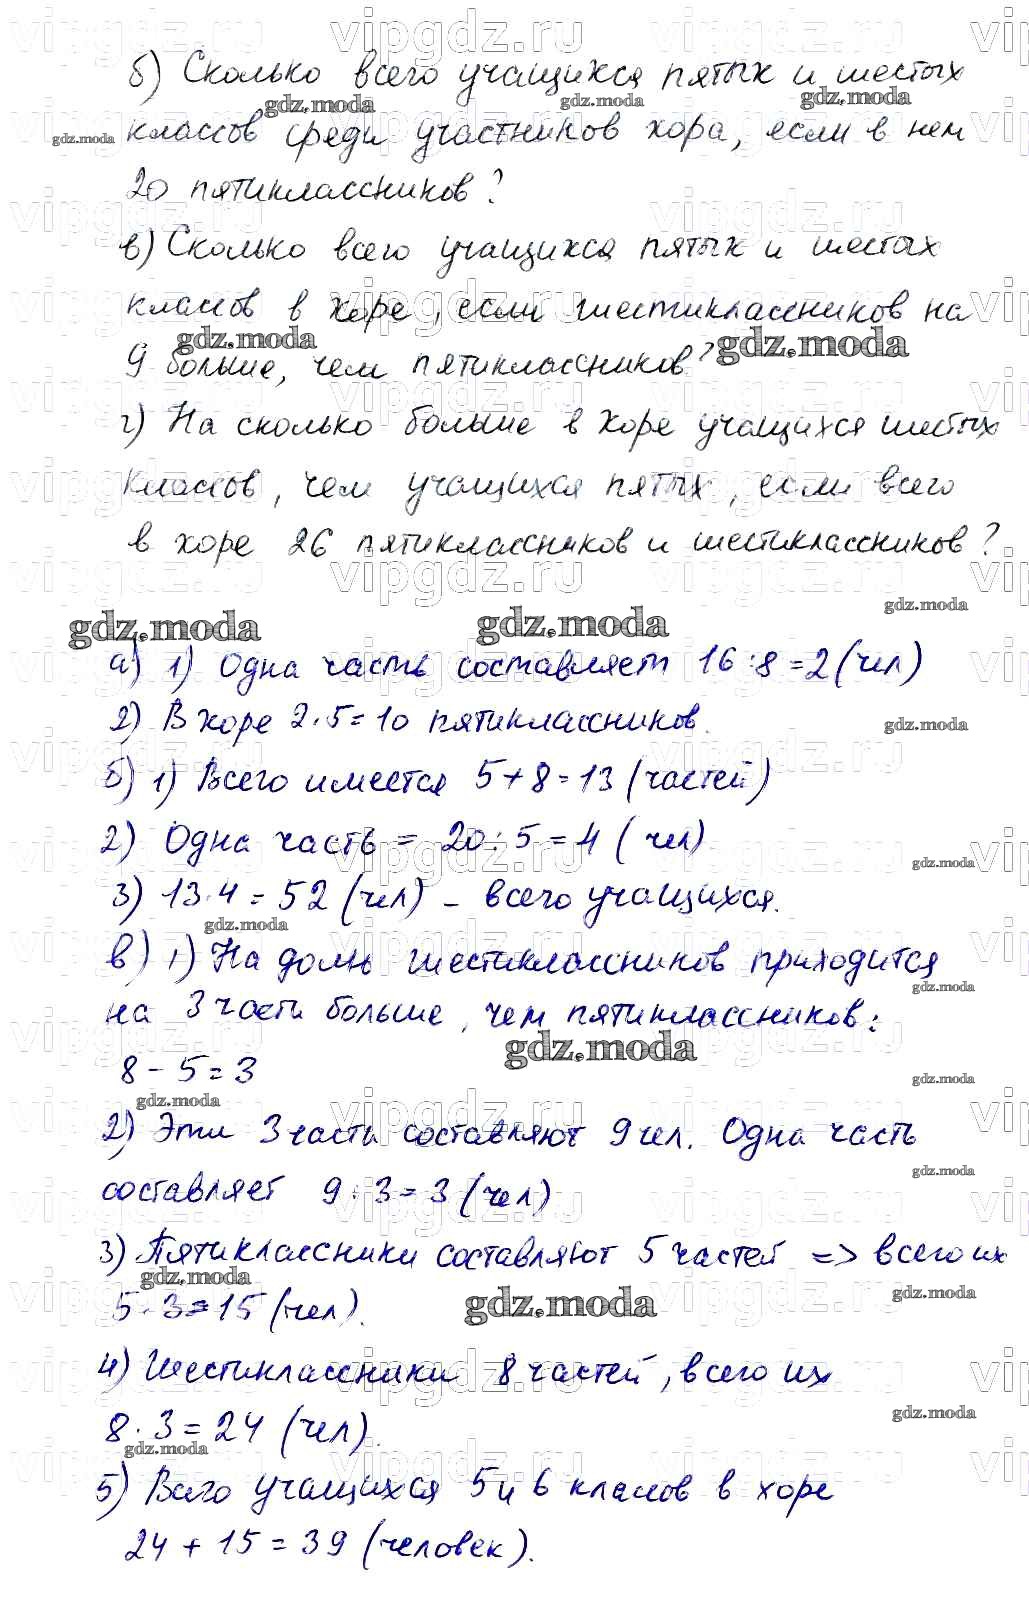 б) Сколько всего учащихся пятых и шестых
классов среди участников хора, если в нем
20 пятиклассников?
в) Сколько всего учащихся пятых и шестых
классов в хоре, если шестиклассников на
9 больше, чем пятиклассников?
г) На сколько больше в хоре учащихся шестых
классов, чем учащихся пятых, если всего
в хоре 26 пятиклассников и шестиклассников?
а) 1) Одна часть составляет 16:8=2 (чел)
2) В хоре 2·5=10 пятиклассников.
б) 1) Всего имеется 5+8=13 (частей)
2) Одна часть = 20:5=4 (чел)
3) 13·4=52 (чел) - всего учащихся.
в) 1) На долю шестиклассников приходится
на 3 части больше, чем пятиклассников:
8-5=3
2) Эти 3 части составляют 9 чел. Одна часть
составляет 9:3=3 (чел)
3) Пятиклассники составляют 5 частей => всего их
5·3=15 (чел).
4) Шестиклассники 8 частей, всего их
8·3=24 (чел).
5) Всего учащихся 5 и 6 класов в хоре
24+15=39 (человек).